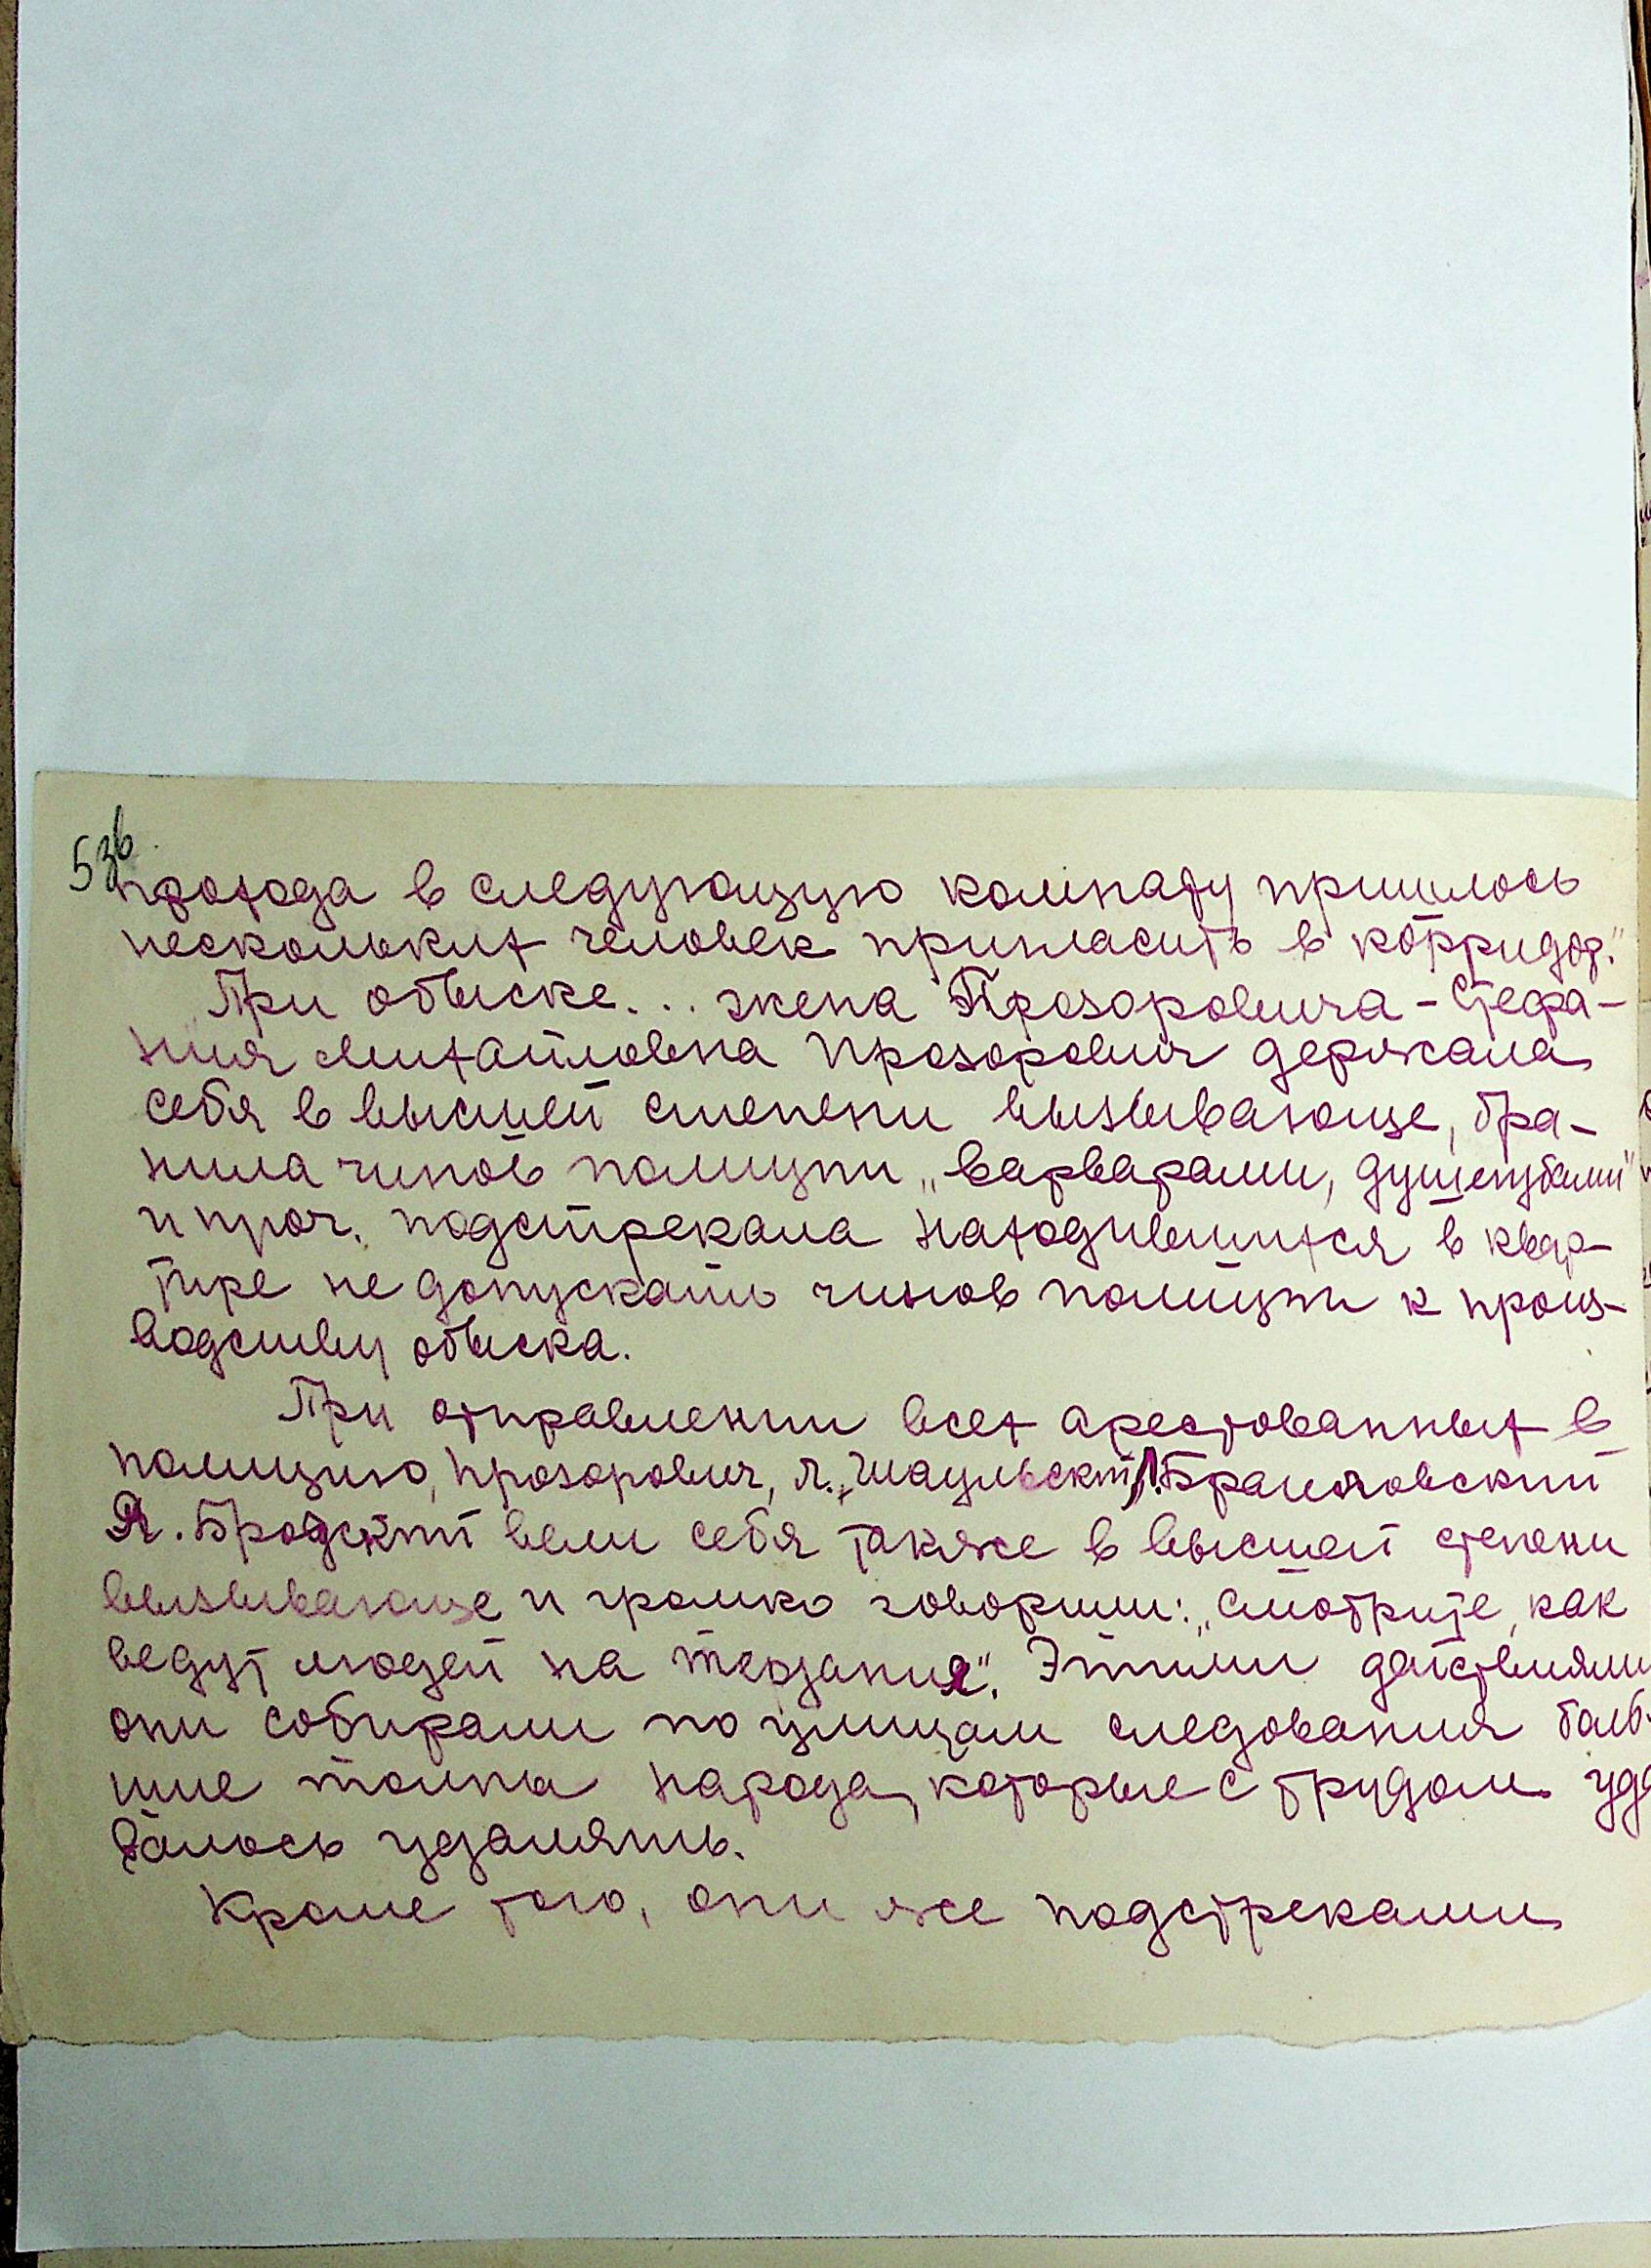 53б
прохода в следующую комнату пришлось
нескольких человек пригласить в корридор."
"При обыске... жена Прозоровича - Стефа-
ния Михайловна Прозорович держала
себя в высшей степени вызывающе, бра-
нила чинов полиции „варварами, душегубами"
и проч. подстрекала находившихся в квар-
тире не допускать чинов полиции к произ-
водству обыска.
При отправлении всех арестованных в
полицию, Прозорович, Я. Шацульский, Л. Браиловский
Я. Бродский вели себя также в высшей степени
вызывающе и громко говорили: „смотрите, как
ведут людей на терзания". Этими действиями
они собирали по улицам следования боль-
шие толпы народа, которые с трудом уда
валось удалять.
Кроме того, они же подстрекали